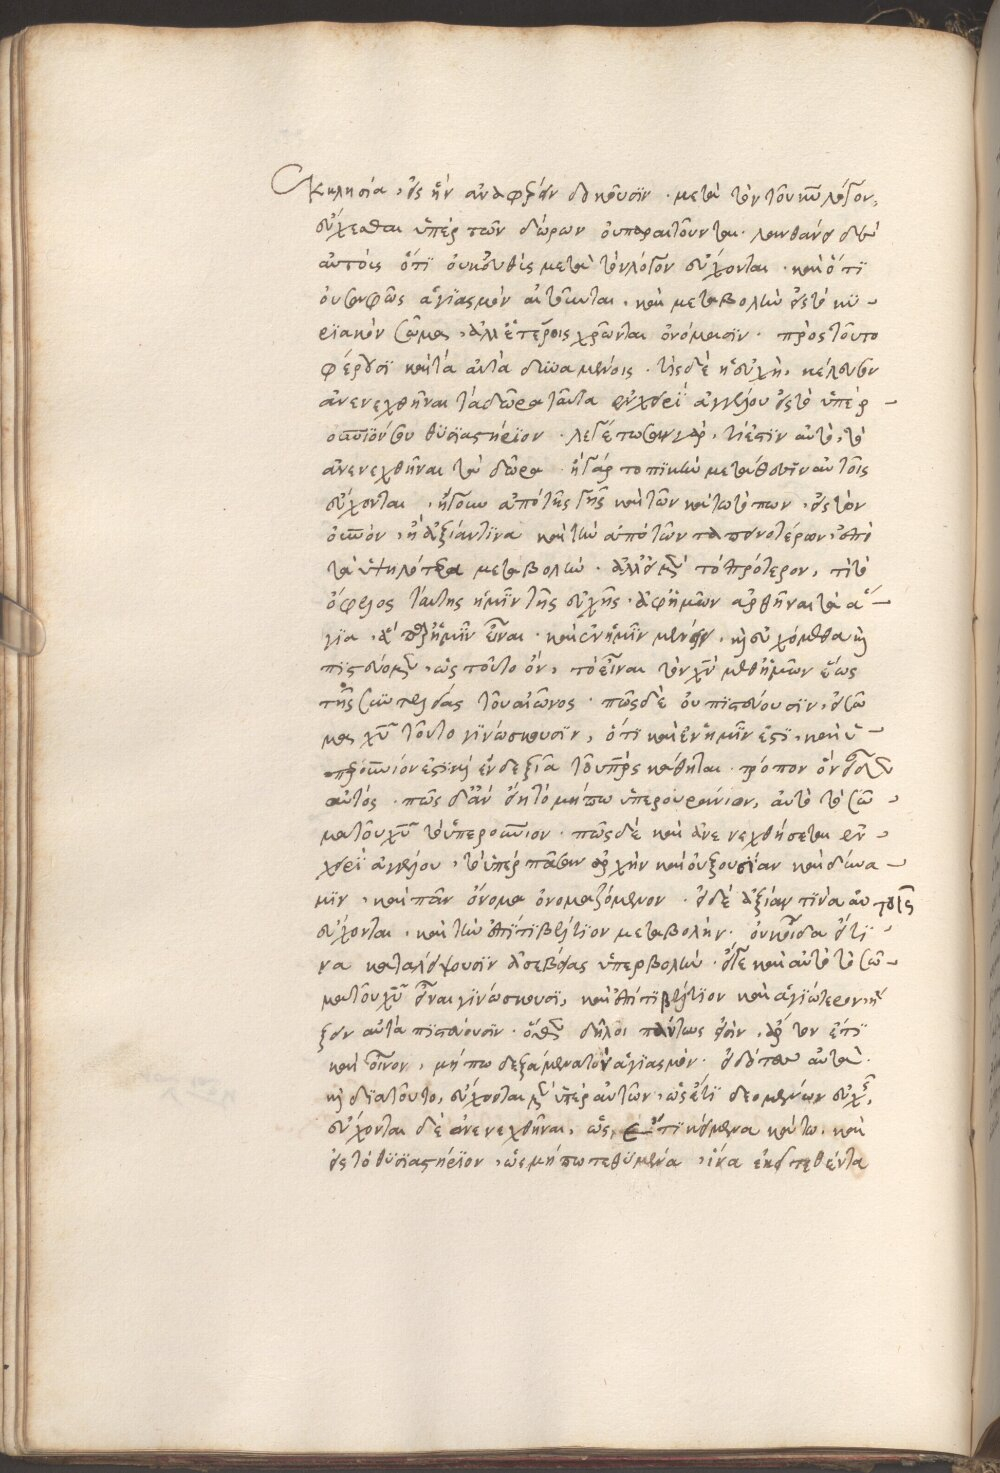 κκλησία, εἰς ἣν ἀναφέρειν δοκοῦσιν· μετὰ τὸν τοῦ κυ̅ λόγον,
εὔχεσθαι ὑπὲρ τῶν δώρων οὐ παραιτοῦνται· λανθάνει δὲ
αὐτοὺς ὅτι οὐκ εὐθὺς μετὰ τὸν λόγον εὔχονται· καὶ ὅτι
οὐ σαφῶς ἁγιασμὸν αἰτοῦνται, καὶ μεταβολὴν εἰς τὸ κυ-
ριακὸν σῶμα, ἀλλ' ἑτέροις χρῶνται ὀνόμασιν· πρὸς τοῦτο
φέρουσι καὶ τὰ αὐτὰ δυναμένοις· τίς δὲ ἡ εὐχή, κέλευσον
ἀνενεχθῆναι τὰ δῶρα ταῦτα ἐν χειρὶ ἀγγέλου εἰς τὸ ὑπερ-
ουνιόν σου θυσιαστήριον· λεγέτωσαν γὰρ, τί ἐστιν αὐτὸ, τὸ
ἀνενεχθῆναι τὰ δῶρα· ἢ γὰρ τοπικὴν μετάθεσιν αὐτοῖς
εὔχονται, ἤγουν ἀπὸ τῆς γῆς καὶ τῶν κάτω τόπων, εἰς τὸν
οὐνόν, ἢ ἀξίαν τινα καὶ τὴν ἀπὸ τῶν ταπεινοτέρων, ἐπὶ
τὰ ὑψηλότερα μεταβολήν· ἀλλ' εἰ μὲν τὸ πρότερον, τί τὸ
ὄφελος ταύτης ἡμῖν τῆς εὐχῆς· ἀφ' ἡμῶν ἀρθῆναι τὰ ἅ-
για, ἃ παρ' ἡμῖν εἶναι· καὶ ἐν ἡμῖν μένειν, καὶ εὐχόμεθα καὶ
πιστεύομεν, ὡς τοῦτο ὂν, τὸ εἶναι τὸν χν̅ μεθ' ἡμῶν ἕως
τῆς συντελείας τοῦ αἰῶνος· πῶς δὲ οὐ πιστεύουσιν, εἰ σῶ
μα χυ̅ τοῦτο γινώσκουσιν, ὅτι καὶ ἐν ἡμῖν ἐστι, καὶ ὑ-
περουνιόν ἐστι καὶ ἐν δεξιᾷ τοῦ πρς κάθηται· τρόπον ὃν οἶδεν
αὐτός· πῶς δ' ἂν εἴη τὸ μήπω ὑπερουράνιον, αὐτὸ τὸ σῶ-
μα τοῦ χυ̅ τὸ ὑπερουνιον· πῶς δὲ καὶ ἀνενεχθήσεται ἐν-
χειρὶ ἀγγέλου, τὸ ὑπὲρ πᾶσαν ἀρχὴν καὶ ἐξουσίαν καὶ δύνα-
μιν, καὶ πᾶν ὄνομα ὀνομαζόμενον· εἰ δὲ ἀξίαν τινὰ αὐτοῖς
εὔχονται, καὶ τὴν ἐπί τι βέλτιον μεταβολήν· οὐκ οἶδα εἴ τι-
να καταλείψουσιν ἀσεβείας ὑπερβολήν· εἴγε καὶ αὐτὸ τὸ σῶ-
μα τοῦ χυ̅ εἶναι γινώσκουσι, καὶ ἐπί τι βέλτιον καὶ ἁγιώτερον ἥ
ξειν αὐτὰ πιστεύουσιν· ὅθεν δῆλοι πάντως εἰσὶν, ἄρτον ἔτι
καὶ οἶνον, μήπω δεξάμενα τὸν ἁγιασμὸν· εἰδότες αὐτὰ·
καὶ διατοῦτο, εὔχονται μὲν ὑπὲρ αὐτῶν, ὡς ἔτι δεομένων εὐχῆς,
εὔχονται δὲ ἀνενεχθῆναι, ὡς, ἔτι κείμενα κάτω, καὶ
εἰς τὸ θυσιαστήριον, ὡς μήπω τεθυμένα, ἵνα ἐκεῖ τεθέντα